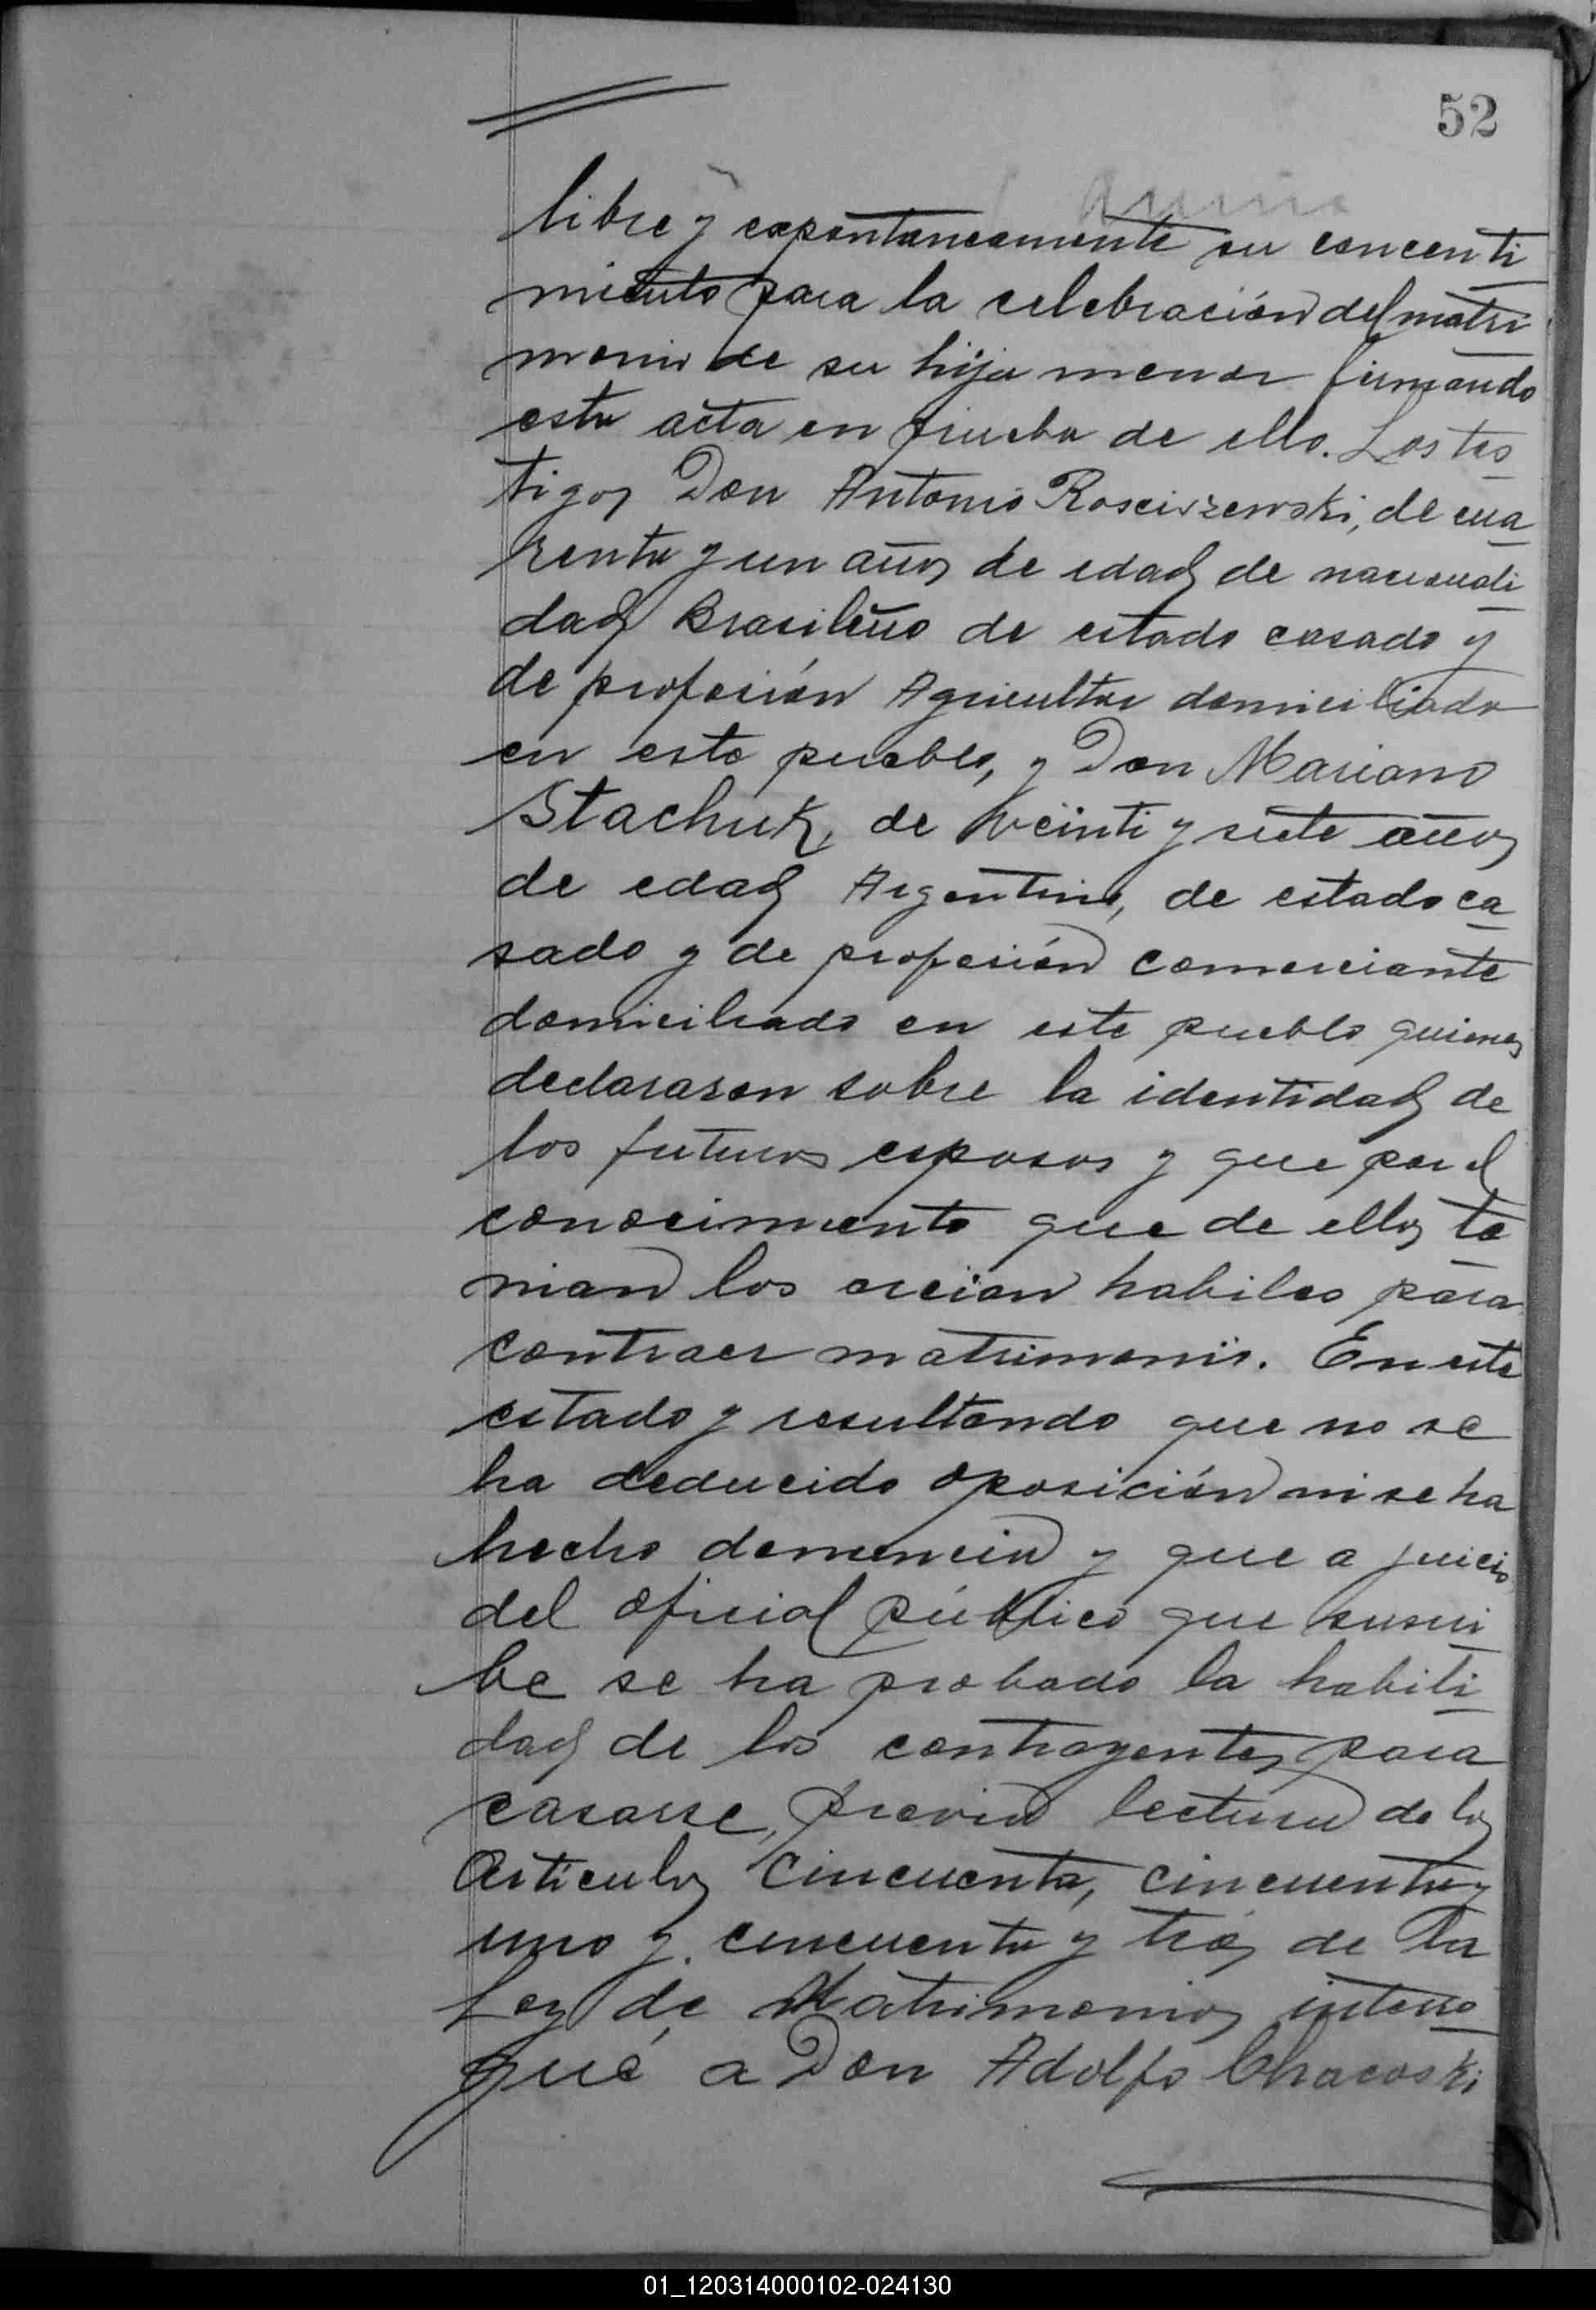 52
libre y expontaneamente su concenti
miento para la celebración del matri
monio de su hija menor firmando
esta acta en prueba de ello. Los tes
tigos Don Antonio Rosciszewski, de cua
renta y un años de edad de nacionali
dad Brasileño de estado casado y
de profesión Agricultor domiciliado
en este pueblo, y Don Mariano
Stachuk, de veinti y siete años
de edad Argentino, de estado ca
sado y de profesión comerciante
domiciliado en este pueblo quienes
declararon sobre la identidad de
los futuros esposos y que por el
conocimiento que de ellos te
nian los creian habiles para
contraer matrimonio. En este
estado y resultando que no se
ha deducido oposición ni se ha
hecho denuncia y que a juicio
del oficial público que suscri
be se ha probado la habili
dad de los contrayentes para
casarse, previa lectura de los
Articulos cincuenta, cincuenta y
uno y cincuenta y tres de la
Ley de Matrimonios interro
gué a Don Adolfo Chacoski
01_120314000102-024130